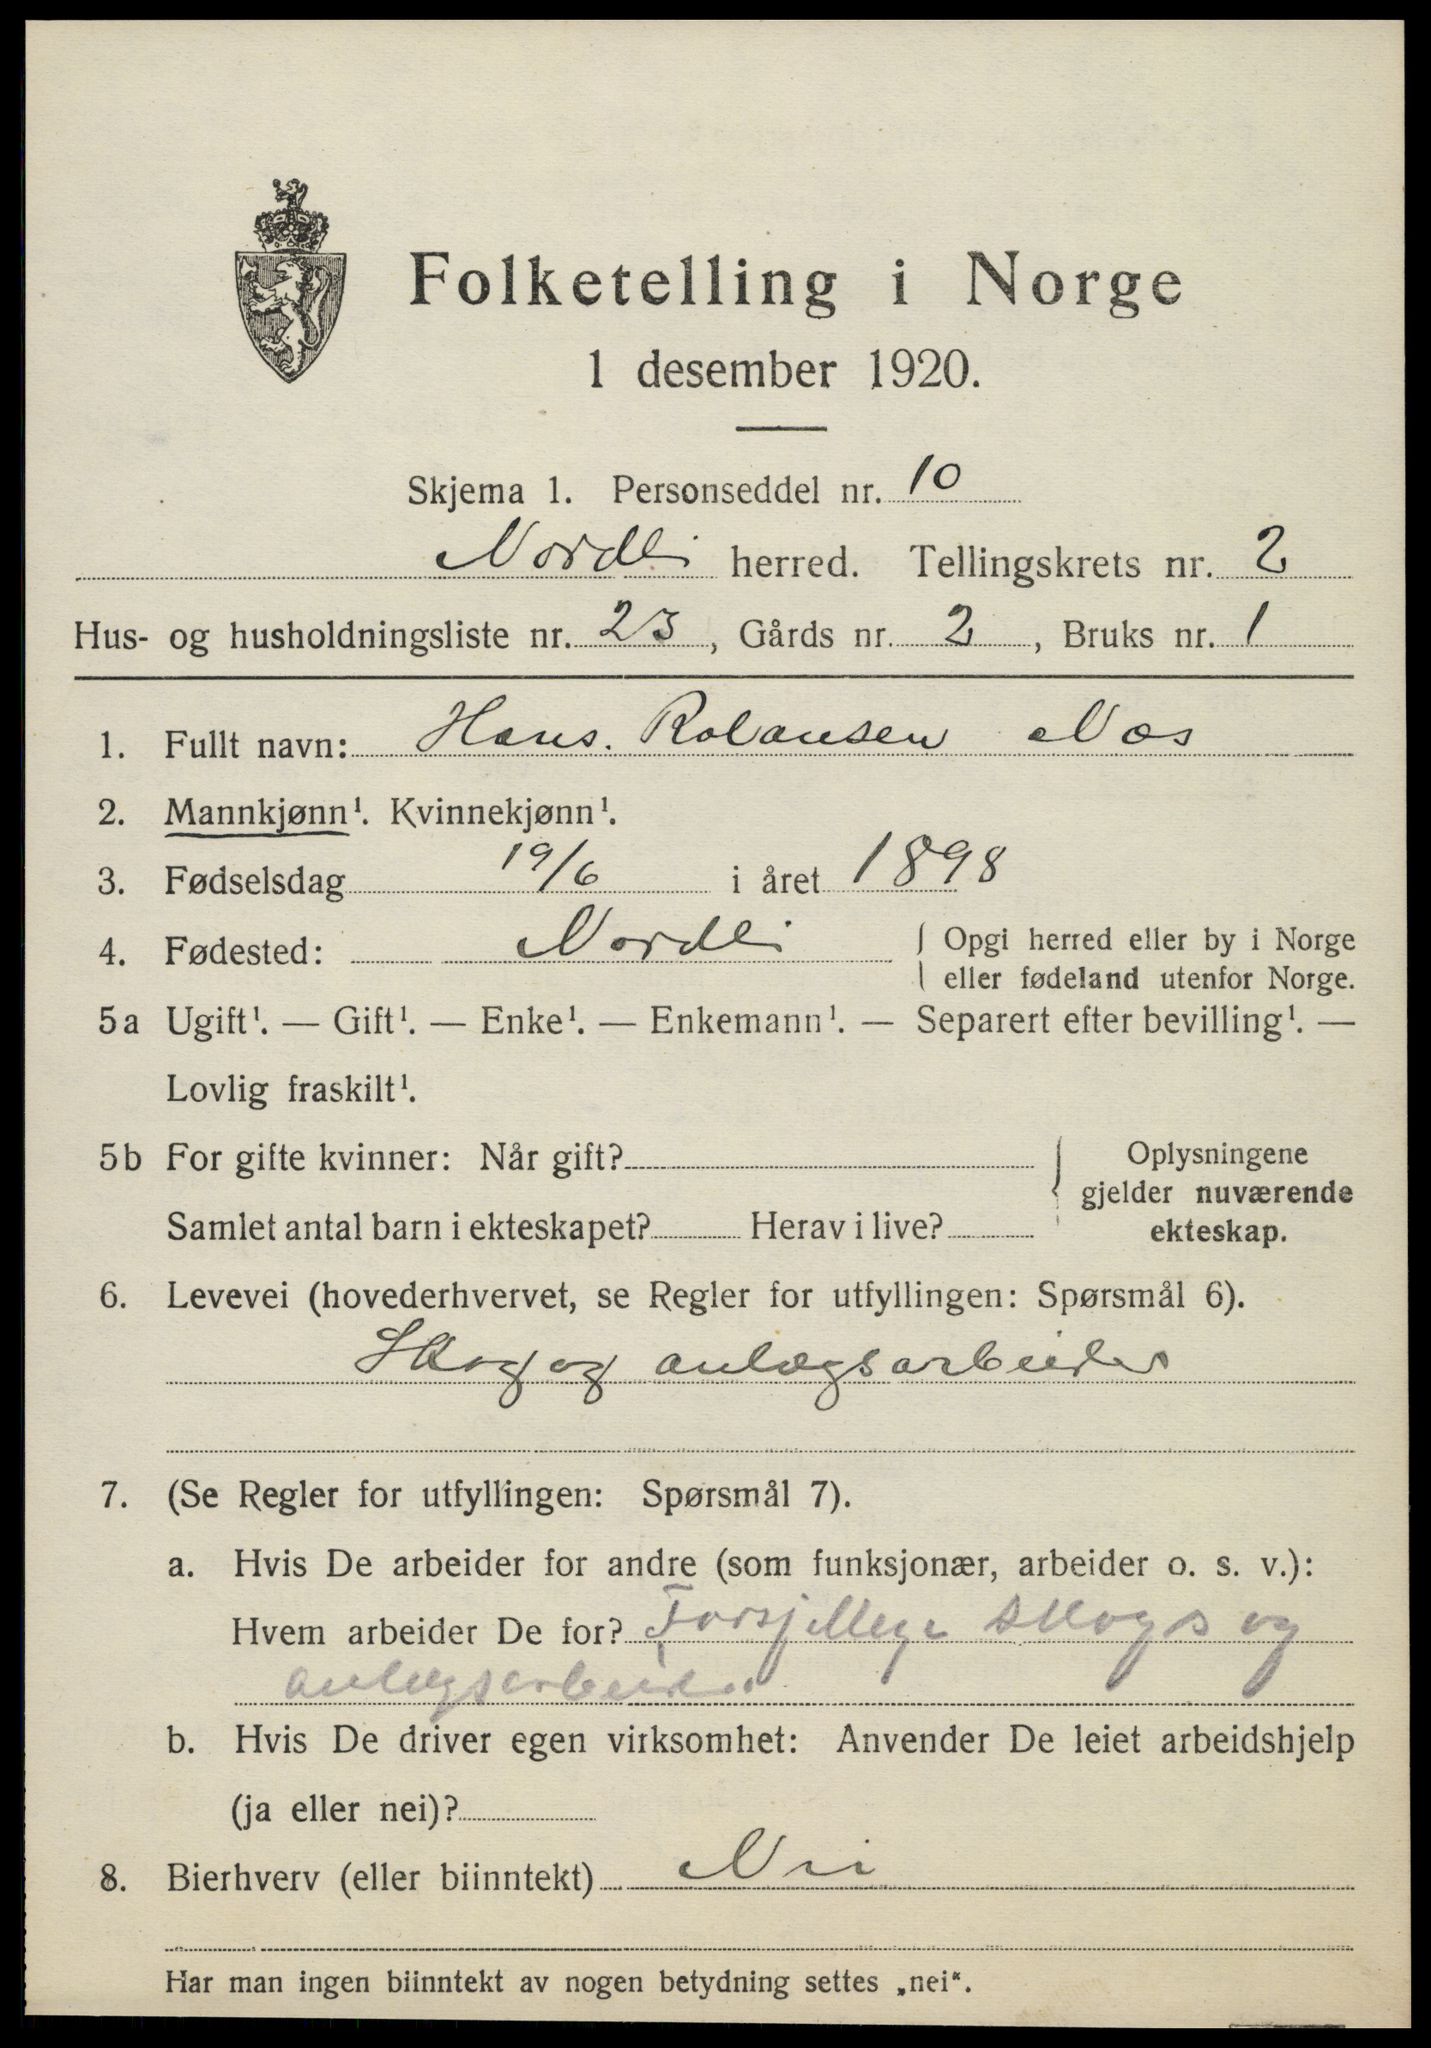 Folketelling i Norge
1 desember 1920.
Skjema 1. Personseddel nr. 10
Nordli herred. Tellingskrets nr. 2
Hus- og husholdningsliste nr. 23, Gårds nr. 2, Bruks nr. 1
1. Fullt navn: Hans. Rolansen Næs
2. Mannkjønn¹. Kvinnekjønn¹.
3. Fødselsdag 19/6 i året 1898
4. Fødested: Nordli { Opgi herred eller by i Norge
eller fødeland utenfor Norge.
5a Ugift¹. — Gift¹. — Enke¹. — Enkemann¹. — Separert efter bevilling¹. —
Lovlig fraskilt¹.
5b For gifte kvinner: Når gift? { Oplysningene
gjelder nuværende
Samlet antal barn i ekteskapet? Herav i live? ekteskap.
6. Levevei (hovederhvervet, se Regler for utfyllingen: Spørsmål 6).
Skog og anlægsarbeider
7. (Se Regler for utfyllingen: Spørsmål 7).
a. Hvis De arbeider for andre (som funksjonær, arbeider o. s. v.):
Hvem arbeider De for? Forsjellige skogs og
anlægsarbeider
b. Hvis De driver egen virksomhet: Anvender De leiet arbeidshjelp
(ja eller nei)?
8. Bierhverv (eller biinntekt) Nei
Har man ingen biinntekt av nogen betydning settes „nei“.